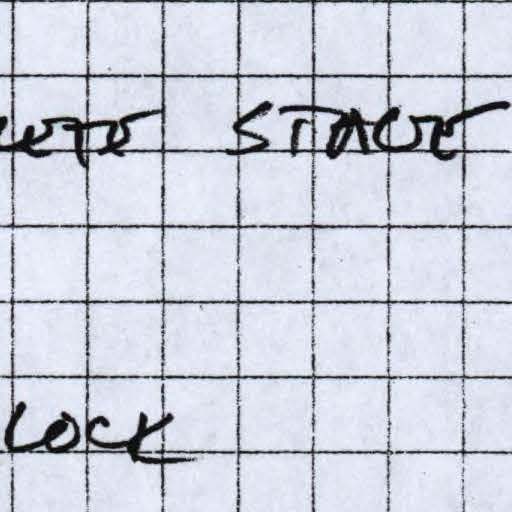 LETE STAGE
LOCK